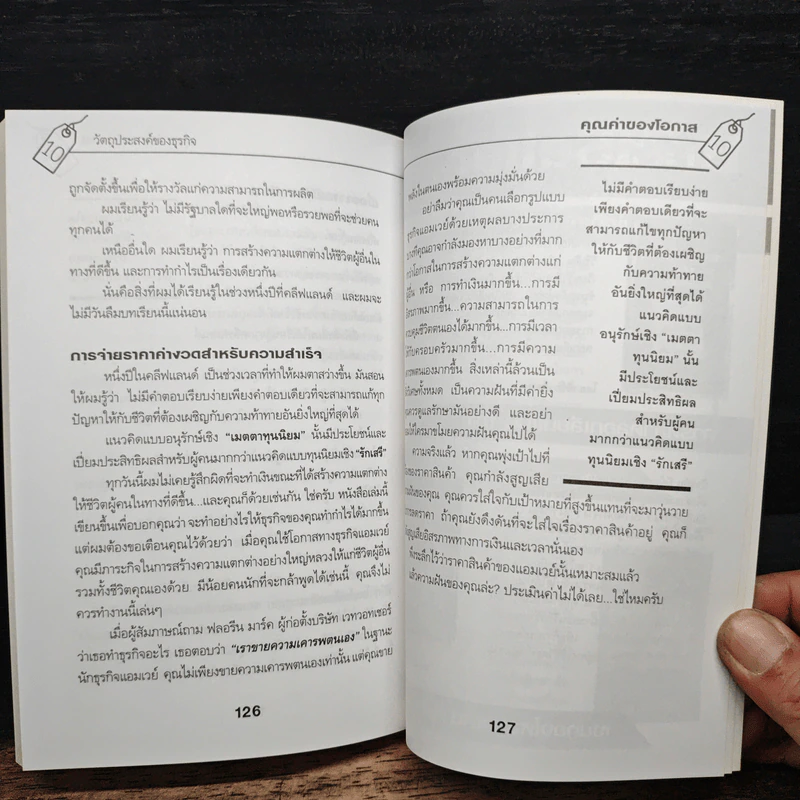 10
วัตถุประสงค์ของธุรกิจ
ถูกจัดตั้งขึ้นเพื่อให้รางวัลแก่ความสามารถในการผลิต
ผมเรียนรู้ว่า ไม่มีรัฐบาลใดที่จะใหญ่พอหรือรวยพอที่จะช่วยคน
ทุกคนได้
เหนืออื่นใด ผมเรียนรู้ว่า การสร้างความแตกต่างให้ชีวิตผู้อื่นใน
ทางที่ดีขึ้น และการทำกำไรเป็นเรื่องเดียวกัน
นั่นคือสิ่งที่ผมได้เรียนรู้ในช่วงหนึ่งปีที่คลีฟแลนด์ และผมจะ
ไม่มีวันลืมบทเรียนนี้แน่นอน
การจ่ายราคาค่างวดสำหรับความสำเร็จ
หนึ่งปีในคลีฟแลนด์ เป็นช่วงเวลาที่ทำให้ผมตาสว่างขึ้น มันสอน
ให้ผมรู้ว่า ไม่มีคำตอบเรียบง่ายเพียงคำตอบเดียวที่จะสามารถแก้ทุก
ปัญหาให้กับชีวิตที่ต้องเผชิญกับความท้าทายอันยิ่งใหญ่ที่สุดได้
แนวคิดแบบอนุรักษ์เชิง “เมตตาทุนนิยม” นั้นมีประโยชน์และ
เปี่ยมประสิทธิผลสำหรับผู้คนมากกว่าแนวคิดแบบทุนนิยมเชิง “รักเสรี”
ทุกวันนี้ผมไม่เคยรู้สึกผิดที่จะทำเงินขณะที่ได้สร้างความแตกต่าง
ให้ชีวิตผู้คนในทางที่ดีขึ้น...และคุณก็ด้วยเช่นกัน ใช่ครับ หนังสือเล่มนี้
เขียนขึ้นเพื่อบอกคุณว่า จะทำอย่างไรให้ธุรกิจของคุณทำกำไรได้มากขึ้น
แต่ผมต้องขอเตือนคุณไว้ด้วยว่า เมื่อคุณใช้โอกาสทางธุรกิจแอมเวย์
คุณมีภาระกิจในการสร้างความแตกต่างอย่างใหญ่หลวงให้แก่ชีวิตผู้อื่น
รวมทั้งชีวิตคุณเองด้วย มีน้อยคนนักที่จะกล้าพูดได้เช่นนี้ คุณจึงไม่
ควรทำงานนี้เล่นๆ
เมื่อผู้สัมภาษณ์ถาม ฟลอรีน มาร์ค ผู้ก่อตั้งบริษัท เวทวอทเชอร์
ว่าเธอทำธุรกิจอะไร เธอตอบว่า “เราขายความเคารพตนเอง” ในฐานะ
นักธุรกิจแอมเวย์ คุณไม่เพียงขายความเคารพตนเองเท่านั้น แต่คุณขาย
126
คุณค่าของโอกาส
10
พลังในตนเองพร้อมความมุ่งมั่นด้วย
อย่าลืมว่าคุณเป็นคนเลือกรูปแบบ
ธุรกิจแอมเวย์ด้วยเหตุผลบางประการ
คุณอาจกำลังมองหาบางอย่างที่มาก
โอกาสในการสร้างความแตกต่างแก่
ผู้อื่น หรือ การทำเงินมากขึ้น...การมี
มากขึ้น...ความสามารถในการ
ควบคุมชีวิตตนเองได้มากขึ้น...การมีเวลา
ให้กับครอบครัวมากขึ้น...การมีความ
เคารพตนเองมากขึ้น สิ่งเหล่านี้ล้วนเป็น
ทั้งหมด เป็นความฝันที่มีค่ายิ่ง
ควรดูแลรักษามันอย่างดี และอย่า
ให้ใครมาขโมยความฝันคุณไปได้
ความจริงแล้ว หากคุณพุ่งเป้าไปที่
ของราคาสินค้า คุณกำลังสูญเสีย
ความฝันของคุณ คุณควรใส่ใจกับเป้าหมายที่สูงขึ้นแทนที่จะมาวุ่นวาย
ลดราคา ถ้าคุณยังดึงดันที่จะใส่ใจเรื่องราคาสินค้าอยู่ คุณก็
สูญเสียอิสรภาพทางการเงินและเวลานั่นเอง
พึงระลึกไว้ว่าราคาสินค้าของแอมเวย์นั้นเหมาะสมแล้ว
แล้วความฝันของคุณล่ะ? ประเมินค่าไม่ได้เลย...ใช่ไหมครับ
ไม่มีคำตอบเรียบง่าย
เพียงคำตอบเดียวที่จะ
สามารถแก้ไขทุกปัญหา
ให้กับชีวิตที่ต้องเผชิญ
กับความท้าทาย
อันยิ่งใหญ่ที่สุดได้
แนวคิดแบบ
อนุรักษ์เชิง “เมตตา
ทุนนิยม” นั้น
มีประโยชน์และ
เปี่ยมประสิทธิผล
สำหรับผู้คน
มากกว่าแนวคิดแบบ
ทุนนิยมเชิง “รักเสรี”
127